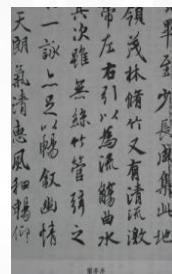 畢至少長咸集此地
領茂林脩竹又有清流激
帶左右引以為流觴曲水
其次雖無絲竹管弦之
一詠亦足以暢叙幽情
天朗氣清惠風和暢仰